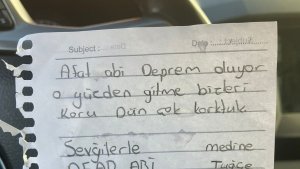 Subject :
Date :
Afat abi Deprem oluyor
o yüzden gitme bizleri
Koru Dün çok korktuk
Sevgilerle medine
ABİ Tuğçe